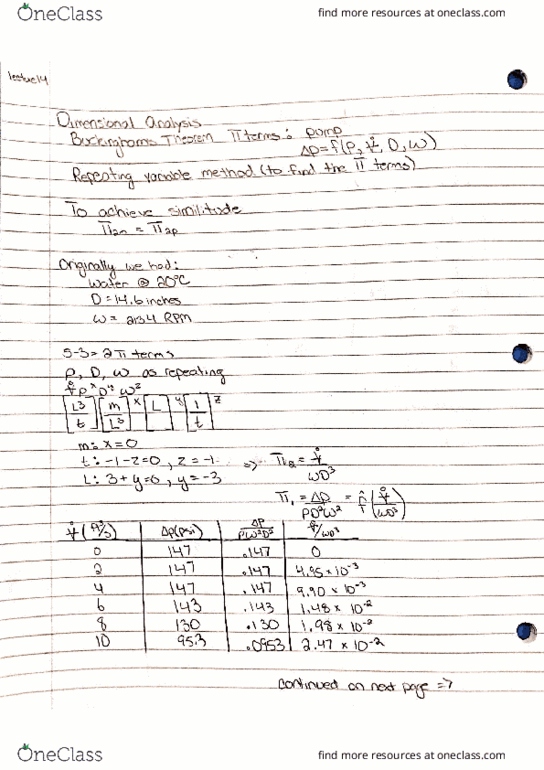 OneClass
find more resources at oneclass.com
lecture14
Dimensional Analysis
Buckinghams Theorem Π terms: pump
Δp=f(ρ, V̶̊, D, ω)
Repeating variable method (to find the Π terms)
To achieve similitude
Π2m = Π2p
Originally we had:
Water @ 20°C
D = 14.6 inches
ω = 2134 RPM
5-3= 2 Π terms
ρ, D, ω as repeating
V̶̊ ρ^x D^y ω^z
[L³/t] [m/L³]^x [L]^y [1/t]^z
m: x=0
t: -1-z=0, z=-1 => Π2 = V̶̊/ωD³
L: 3+y=0, y=-3
Π1 = Δp/ρD²ω² = f̂ (V̶̊/ωD³)
V̶̊ (ft³/s) Δp(psi) Δp/ρω²D² V̶̊/ωD³
0 147 .147 0
2 147 .147 4.95 x 10⁻³
4 147 .147 9.90 x 10⁻³
6 143 .143 1.48 x 10⁻²
8 130 .130 1.98 x 10⁻²
10 95.3 .0953 2.47 x 10⁻²
continued on next page =>
OneClass
find more resources at oneclass.com